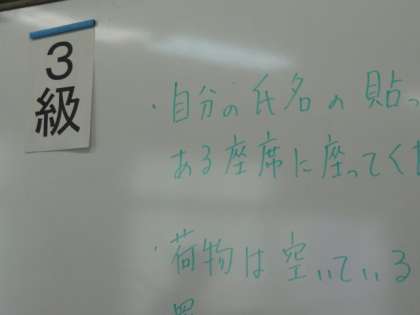 3級
・自分の氏名の貼っ
ある座席に座ってく
・荷物は空いている